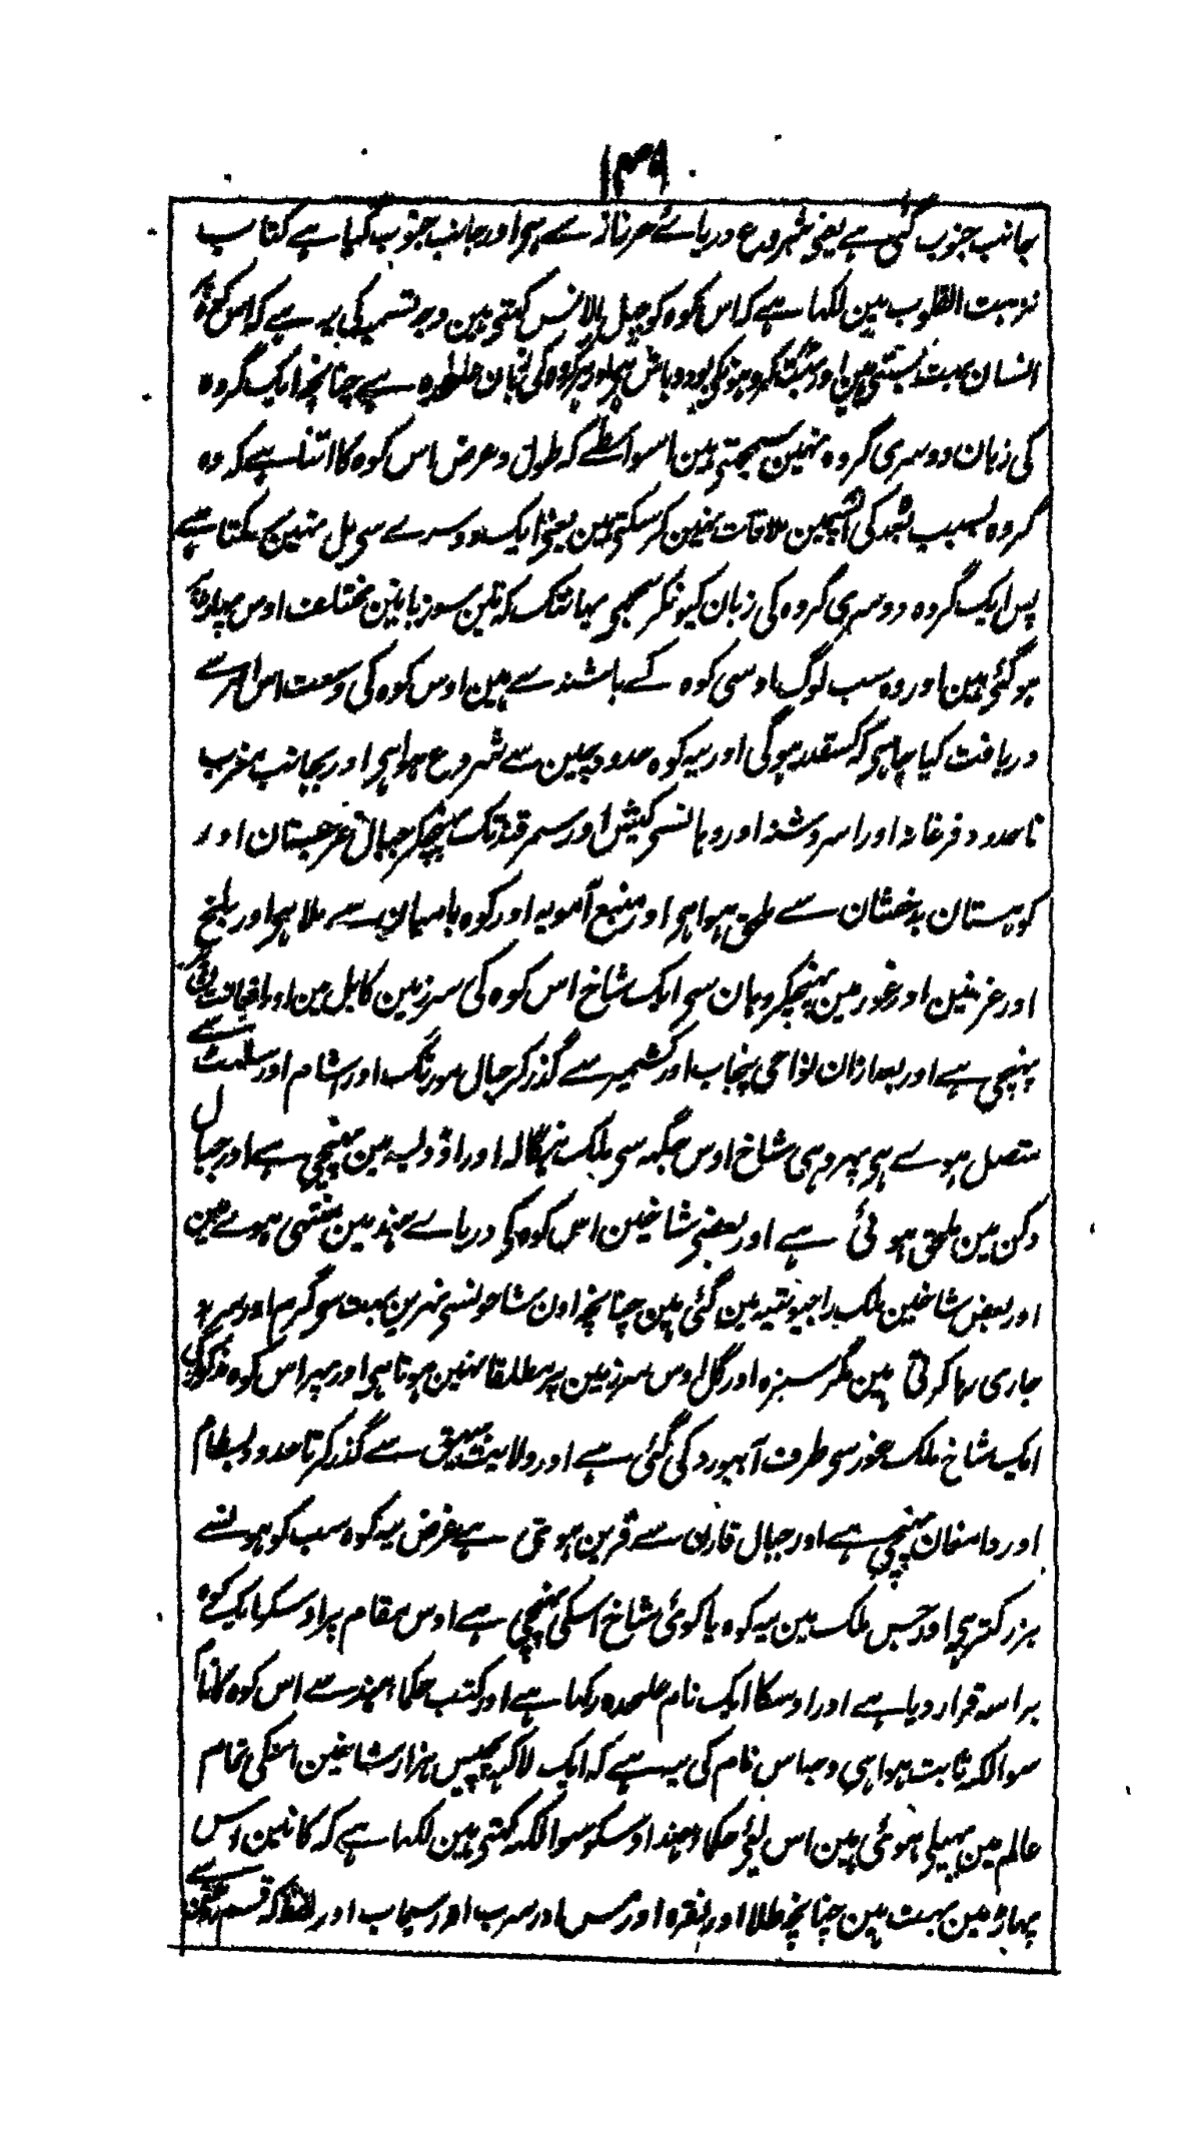 ۱۳۹
جانب جنوب گئی ہے یعنی شروع دریائے خرناز سے ہی اور جانب جنوب گیا ہے کتاب
نزہت القلوب مین لکہا ہے کہ اس کوہ کو جبل بالانس کہتی ہین وجہ تسمیہ کی یہ ہے کہ اس کوہ پر
انسان بہت بستی ہین اور بہت گروہونکی بود و باش ہی اور ہر گروہ کی زبان علٰحدہ ہے چنانچہ ایک گروہ
کی زبان دوسری گروہ نہین سمجہتی ہین اسواسطے کہ طول و عرض اس کوہ کا اتنا ہے کہ وہ
گروہ بسبب بعد کی آپسمین ملاقات نہین کر سکتی ہین یعنی ایک دوسرے سی مل نہین سکتا ہے
پس ایک گروہ دوسری گروہ کی زبان کیونکر سمجہی یہانتک کہ تین سو زبانین مختلف اوس پہاڑ پر
ہو گئی ہین اور وہ سب لوگ اوسی کوہ کے باشندے ہین اوس کوہ کی وسعت اس امر سے
دریافت کیا چاہی کہ کسقدر ہوگی اور یہ کوہ حدود چین سے شروع ہوا ہی اور بجانب مغرب
تا حدود فرغانہ اور اسروشنہ اور وہانسی کیش اور سمرقند تک پہنچکر جبال غرجستان اور
کوہستان بدخشان سے ملحق ہوا ہی اور منبع آمویہ اور کوہ بامیان سے ملا ہی اور بلخ
اور غزنین اور غور مین پہنچکر وہان سی ایک شاخ اس کوہ کی سرزمین کابل مین اور افغانستان
پہنچی ہے اور بعد ازان نواحی پنجاب اور کشمیر سے گذر کر جبال مورنگ اور آشام اور سلہٹ سے
متصل ہوے ہی پہر وہی شاخ اوس جگہہ سی ملک بنگالہ اور اوڈیسہ مین پہنچی ہے اور جبال
دکن مین ملحق ہوئی ہے اور بعضی شاخین اس کوہ کی دریاے ہند مین منتہی ہوے ہین
اور بعض شاخین ملک راجپوتیہ مین گئی ہین چنانچہ اون شاخونسی نہرین بہت سی گرم اور سرد
جاری رہا کرتی ہین مگر سبزہ اور گل اوس سرزمین پر مطلقا نہین ہوتا ہی اور پہر اس کوہ مذکور کی
ایک شاخ ملک غور سی طرف آبیورد کی گئی ہے اور ولایت بیہق سے گذر کر تا حدود بسطام
اور دامغان پہنچی ہے اور جبال قارن سے قرین ہوتی ہے غرض یہ کوہ سب کوہونسے
بزرگتر ہی اور جس ملک مین یہ کوہ یا کوئی شاخ اسکی پہنچی ہے اوس مقام پر اوسکو ایک کوہ
براسہ قرار دیا ہے اور اوسکا ایک نام علٰحدہ رکہا ہے اور کتب حکما ہند سے اس کوہ کا نام
سوالکہ ثابت ہوا ہی وجہ اس نام کی یہ ہے کہ ایک لاکہہ پچیس ہزار شاخین اسکی تمام
عالم مین پہیلی ہوئی ہین اس لئی حکماء ہند اوسکو سوالکہ کہتی ہین لکہا ہے کہ کانین اس
پہاڑ مین بہت ہین چنانچہ طلا اور نقرہ اور مس اور سرب اور سیماب اور قسم سے